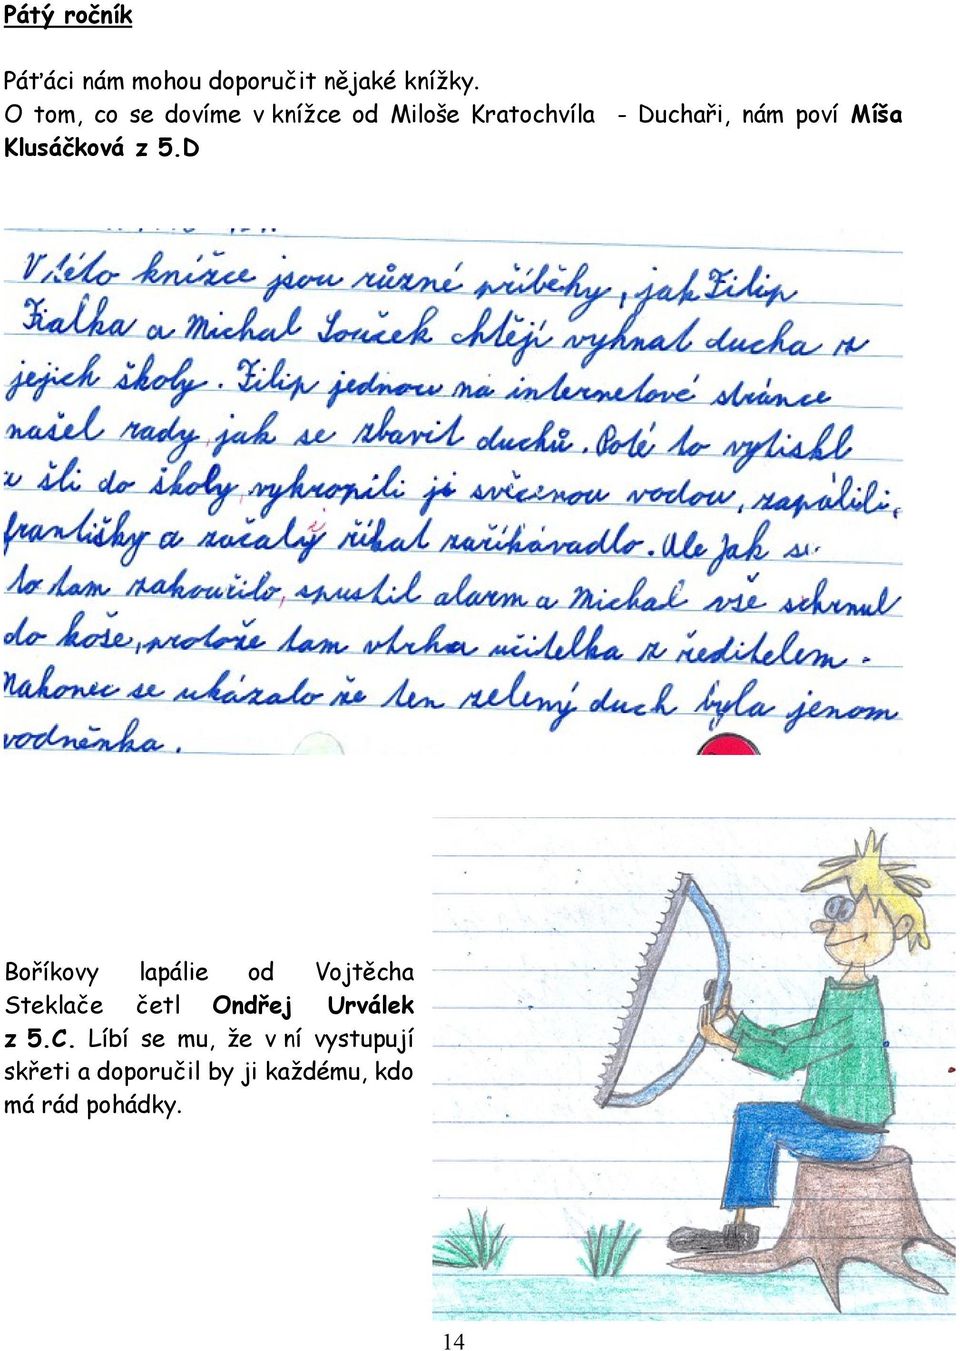 Pátý ročník
Páťáci nám mohou doporučit nějaké knížky.
O tom, co se dovíme v knížce od Miloše Kratochvíla - Duchaři, nám poví Míša
Klusáčková z 5.D
V této knížce jsou různé příběhy, jak Filip
Fialka a Michal Souček chtějí vyhnat ducha z
jejich školy. Filip jednou na internetové stránce
našel rady, jak se zbavit duchů. Poté to vytiskl
a šli do školy, vykropili ji svěcenou vodou, zapálili,
františky a začaly říkat zaříkávadlo. Ale jak se
to tam zakouřilo, spustil alarm a Michal vše schrnul
do koše, protože tam vtrhla učitelka z ředitelem.
Nakonec se ukázalo že ten zelený duch byla jenom
vodněnka.
Boříkovy lapálie od Vojtěcha
Steklače četl Ondřej Urválek
z 5.C. Líbí se mu, že v ní vystupují
skřeti a doporučil by ji každému, kdo
má rád pohádky.
14